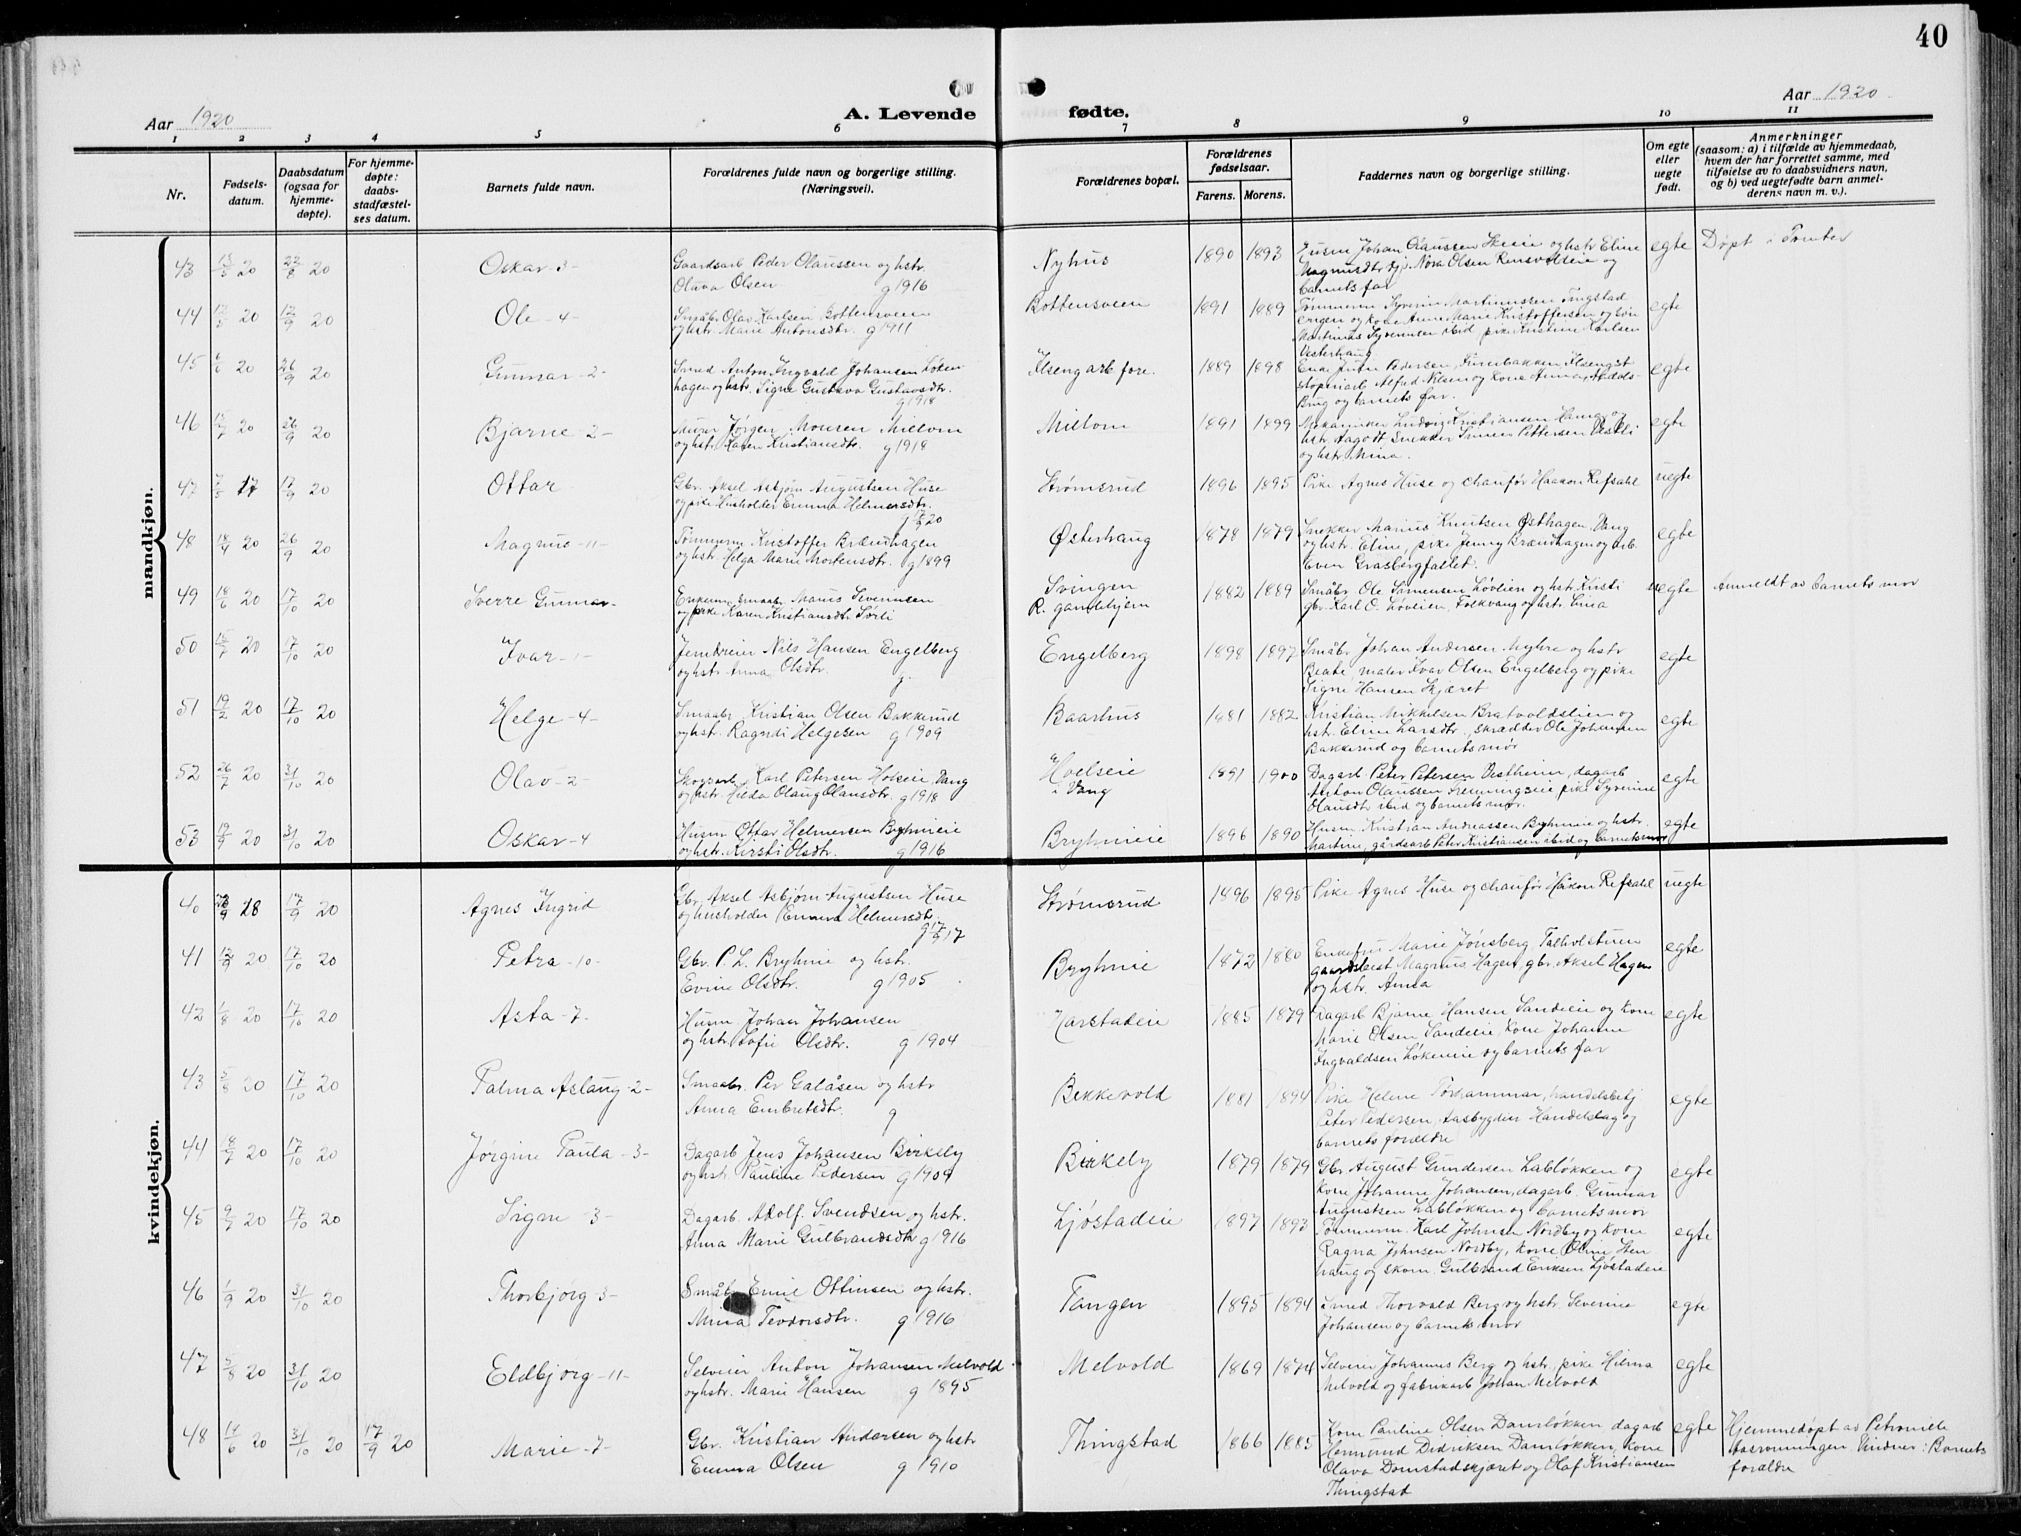 40
Aar 1920
A. Levende fødte.
Aar 1920
1 2 3 4 5 6 7 8 9 10 11
Nr.
Fødsels-
datum.
Daabsdatum
(ogsaa for
hjemme-
døpte).
For hjemme-
døpte:
daabs-
stadfæstel-
ses datum.
Barnets fulde navn.
Forældrenes fulde navn og borgerlige stilling.
(Næringsvei).
Forældrenes bopæl.
Forældrenes
fødselsaar.
Farens. Morens.
Faddernes navn og borgerlige stilling.
Om egte
eller
uegte
født.
Anmerkninger
(saasom: a) i tilfælde av hjemmedaab,
hvem der har forrettet samme, med
tilføielse av to daabsvidners navn,
og b) ved uegtefødte barn anmel-
derens navn m. v.).
mandkjøn.
43 13/5 20 22/8 20 Oskar -3- Gaardsarb Peder Olaussen og hstr. Nyhus 1890 1893 Husm Johan Olaussen Skeie og hstr Eline egte Døpt i Tomter
Olava Olsen g 1916
barnets far
44 20 12/9 20 Ole -4- Småbr Olav Karlsen Bottensveen Bottensveen 1891 1889 Tømmerm Syverin Martinussen Tingstad egte
og hstr Marie Antonsdtr. g 1911
engen og kone Anne Marie Kristoffersen og søn
Martinus Syverinsen ibid pike Kristine Karlsen
Vesterhaug
45 20 26/9 20 Gunnar -2- Smed Anton Ingvald Johansen Løken- Ilseng arb fore. 1889 1898 egte
hagen og hstr. Signe Gustava Gustavsdtr.
g 1918
støperiarb Alfred Nilsen og kone Anna
Brug og barnets far.
46 20 26/9 20 Bjarne -2- Jørgen Monsen Mellom Mellom 1891 1899 Mekaniker Ludvig Kristiansen Haug og egte
og hstr. Karen Kristiansdtr. g 1918
hstr Aagot Snekker Simen Pettersen Vestli
og hstr Mina.
47 17 17/9 20 Ottar Gbr. Aksel Asbjørn Augustsen Huse Strømsrud 1896 1895 Pike Agnes Huse og chaufør Haakon Refsahl uegte
og pike Husholder Emma Helmersdtr.
48 18/4 20 26/9 20 Magnus -11- Tømmerm Kristoffer Brænhagen Østerhaug 1878 1879 Snekker Marius Knutsen Østhagen, Vang egte
og hstr Helga Marie Mortensdtr. g 1899
og hstr. Eline, pike Jenny Brænhagen og arb.
Even Grasbergfallet.
49 18/6 20 17/10 20 Sverre Gunnar- Enkem smaabr Maurs Severinsen Svingen 1882 1889 Småbr Ole Simensen Løvlien og hstr. Kristi uegte Anmeldt av barnets mor
og pike Karen Kristiansdtr Sørli
R. gamlehjem
gbr. Karl O. Løvlien, Folkvang og hstr. Lina
50 15/7 20 17/10 20 Ivar -1- Jerndreier Nils Hansen Engelberg Engelberg 1898 1897 Småbr Johan Andersen Myhre og hstr egte
og hstr Anna Olsdtr. g.
Beate, maler Ivar Olsen Engelberg og pike
Signe Hansen Skjæret
51 19/2 20 17/10 20 Helge -4- Smaabr Kristian Olsen Bakkerud Baashus 1881 1882 Kristian Mikkelsen Bratvoldslien og egte
og hstr. Ragndi Helgesen g 1909
hstr. Eline Larsdtr, skrædder Ole Johansen
Bakkerud og barnets mor
52 26/7 20 31/10 20 Olav -2- Skogsarb Karl Petersen Holseie, Vang Hoelseie 1891 1900 Dagarb Peter Petersen Vestheim, dagarb egte
og hstr Hilda Olaug Olausdtr. g 1918
i Vang
Anton Olaussen pike Syverine
Olausdtr ibid og barnets mor.
53 19/9 20 31/10 20 Oskar -4 Husm Ottar Helmersen Bryhnieie Bryhnieie 1896 1890 Husm Kristian Andreassen Bryhnieie og hstr. egte
og hstr. Kirsti Olsdtr. g 1916
Martine, gårdsarb Peter Kristiansen ibid og barnets mor
kvindekjøn.
40 18 17/9 20 Agnes Ingrid Gbr. Aksel Asbjørn Augustsen Huse Strømsrud 1896 1895 Pike Agnes Huse og chaufør Håkon Refsahl uegte
og husholder Emma Helmersdtr.
41 12/9 20 17/10 20 Petra -10- Gbr. P. L. Bryhnie og hstr. Bryhnie 1872 1880 Enkefru Marie Jønsberg, Talholstuen egte
Evine Olsdtr. g 1905
gaardsbest Magnus Hagen, gbr. Aksel Hagen
og hstr. Anna
42 1/8 20 17/10 20 Asta -7- Husm Johan Johansen Harstadeie 1885 1879 Dagarb Bjarne Hansen Sandeie og kone egte
og hstr Sofie Olsdtr. g 1904
Marie Olsen Sandeie, kone Johanne
Ingvaldsen Løkenie og barnets far
43 5/8 20 17/10 20 Palma Aslaug -2- Smaabr. Per Galåsen og hstr Bekkevold 1881 1894 Pike Helene Torhammar, handelsbetj egte
Anna Embretsdtr. g
Peter Pedersen, Aasbygden Handelslag og
barnets forældre
44 18/7 20 17/10 20 Jørgine Paula -3- Dagarb Jens Johansen Birkely Birkely 1879 1879 Gbr August Gundersen Labløkken og egte
og hstr. Pauline Pedersen g 1909
kone Johanne Johansen, dagarb. Gunnar
Augustsen Labløkken og barnets mor
45 9/7 20 17/10 20 Signe -3- Dagarb. Adolf Svendsen og hstr. Ljøstadeie 1897 1893 Tømmerm. Karl Johnsen Nordby og kone egte
Anna Marie Gulbrandsdtr g 1916
Ragna Johnsen Nordby, kone Oline Sten
haug og skom. Gulbrand Eriksen Ljøstadeie
46 1/9 20 31/10 20 Thorbjørg -3- Småbr Emil Ottinsen og hstr. Tangen 1895 1894 Smed Thorvald Berg og hstr Severine egte
Mina Teodorsdtr. g 1916
Johansen og barnets mor
47 5/8 20 31/10 20 Eldbjørg -11- Selveier Anton Johansen Melvold Melvold 1869 1874 Selveier Johannes Berg og hstr., pike Hilma egte
og hstr. Marie Hansen g 1895
Melvold og fabrikarb Johan Melvold
48 14/6 20 31/10 20 17/9 20 Marie -7- Gbr. Kristian Andersen og hstr Thingstad 1866 1885 Kone Pauline Olsen Damløkken dagarb egte Hjemmedøpt av Petronele
Emma Olsen g 1910
Hermund Didriksen Damløkken, kone
Aasronningen. Vidner: Barnets
Olava Domstadskjæret og Olaf Kristiansen
forældre
Thingstad